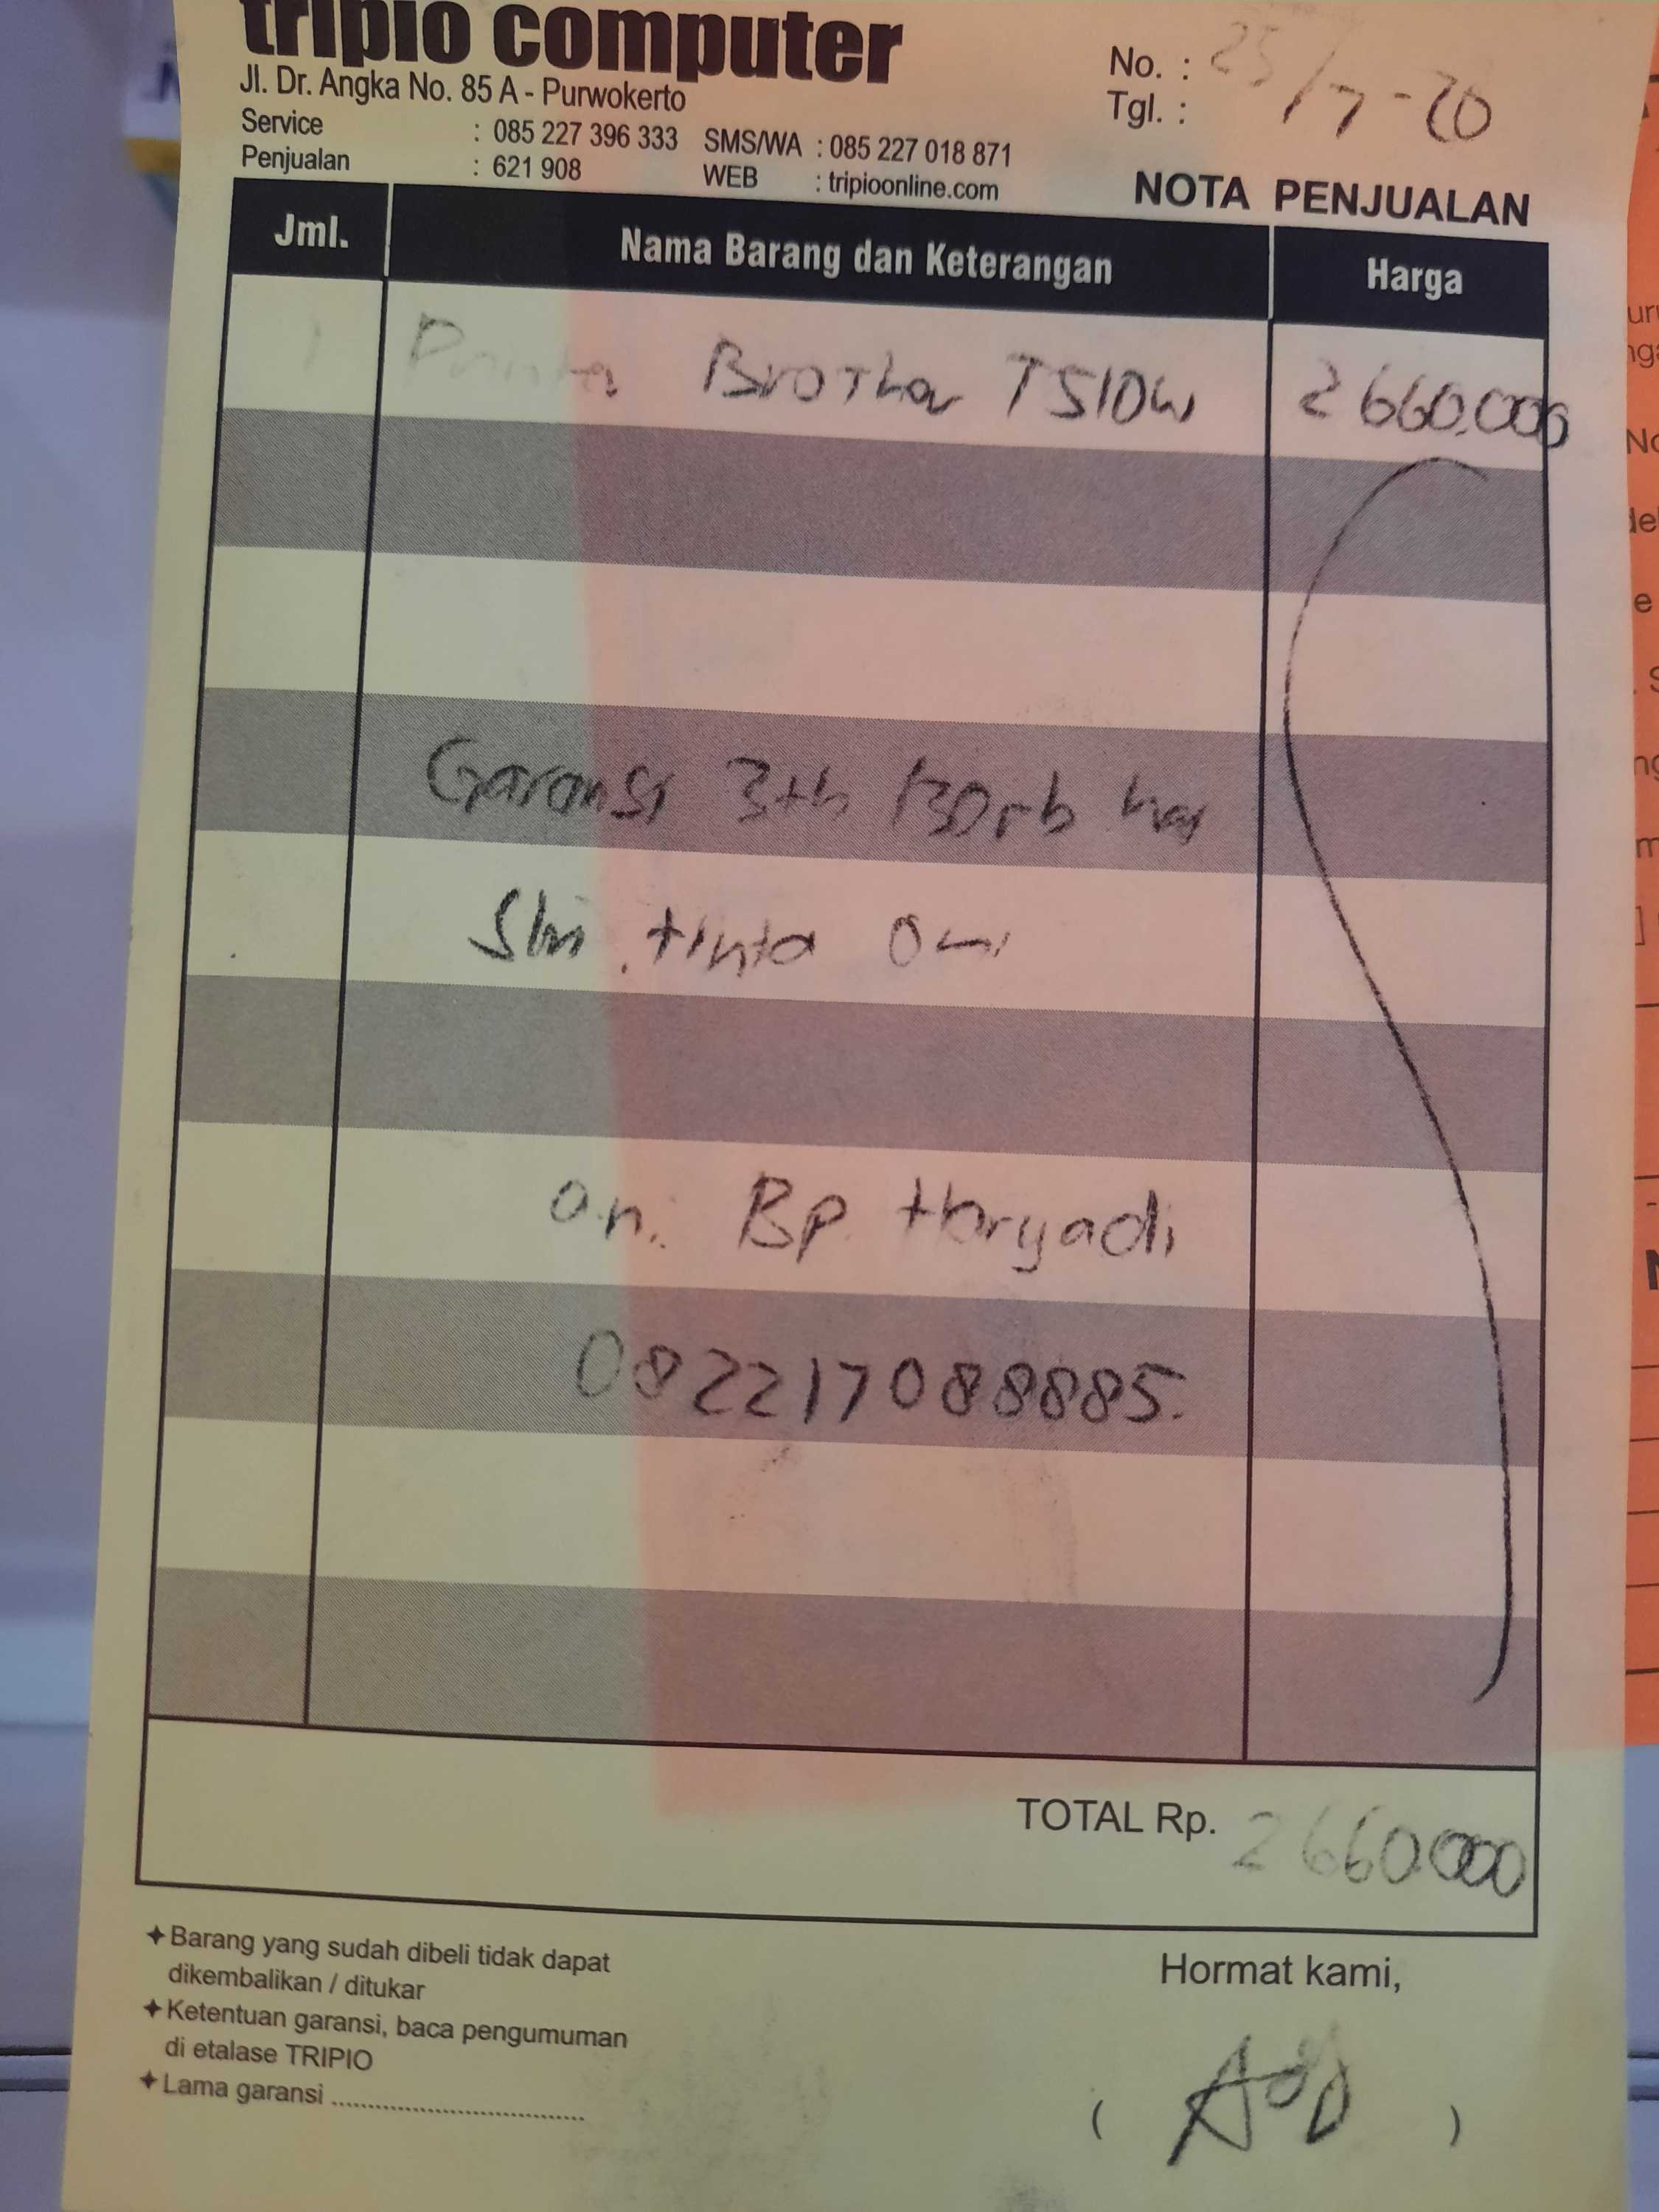 tripio computer
Jl. Dr. Angka No. 85 A - Purwokerto
Service : 085 227 396 333 SMS/WA : 085 227 018 871
Penjualan : 621 908 WEB : tripioonline.com
No. :
Tgl. : 25/7-20
NOTA PENJUALAN
Jml. Nama Barang dan Keterangan Harga
1 Printer Brother T510W 2660.000
Garansi 3th 30rb
tinta
a.n. Bp. Haryadi
082217088885.
TOTAL Rp. 2660.000
✦ Barang yang sudah dibeli tidak dapat
dikembalikan / ditukar
✦ Ketentuan garansi, baca pengumuman
di etalase TRIPIO
✦ Lama garansi ..............................
Hormat kami,
( )